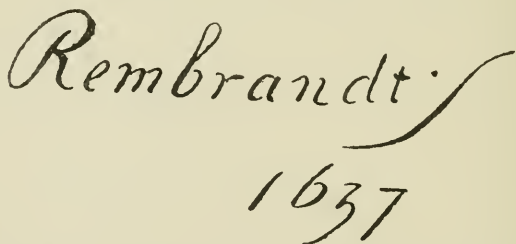 Rembrandt·ſ
1637